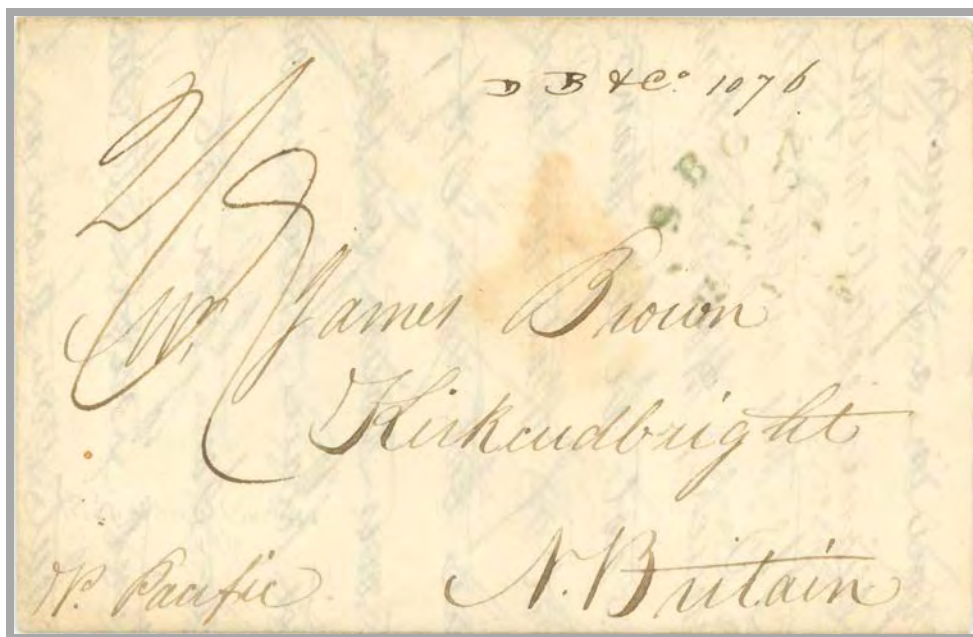 D B & Co. 1076
2/8
Mr. James Brown
Kirkcudbright
N. Britain
P. Pacific